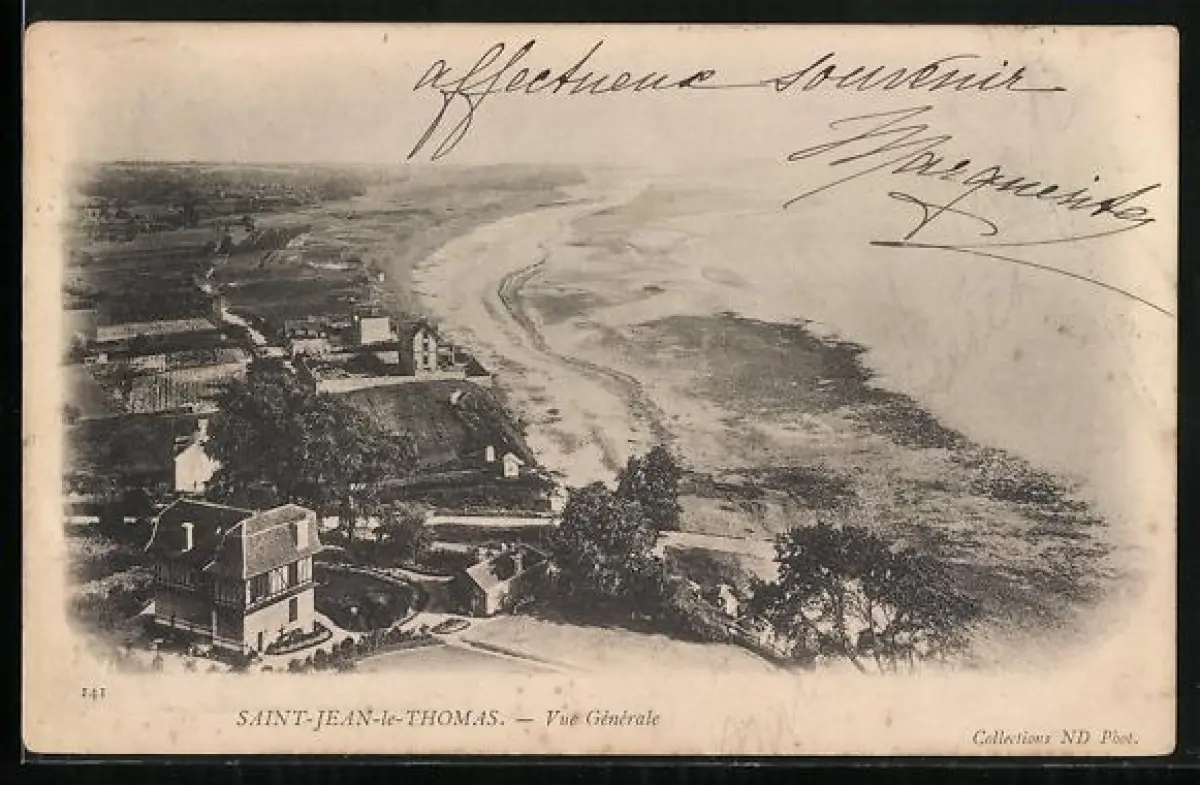 affectueux souvenir
Marguerite
141
SAINT-JEAN-le-THOMAS. — Vue Générale
Collections ND Phot.